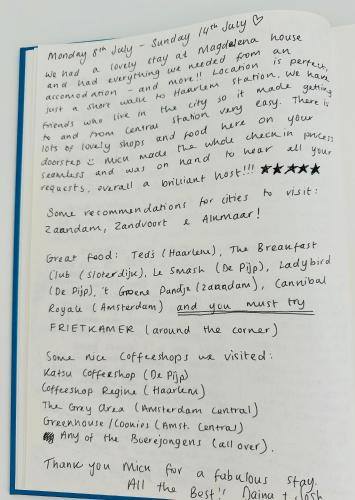 Monday 8th July - Sunday 14th July ♡
We had a lovely stay at Magdalena house
and had everything we needed from an
accomodation - and more!! Location is perfect,
just a short walk to Haarlem station. We have
friends who live in the city so it made getting
to and from central station very easy. There is
lots of lovely shops and food here on your
doorstep :) Mick made the whole check in process
seamless and was on hand to hear all your
requests, overall a brilliant host!!! ★★★★★
Some recommendations for cities to visit:
Zaandam, Zandvoort & Alkmaar!
Great food: Teds (Haarlem), The Breakfast
Club (Sloterdijk), Le Smash (De Pijp), Ladybird
(De Pijp), 't Groene Pandje (Zaandam), Cannibal
Royale (Amsterdam) and you must try
FRIETKAMER (around the corner)
Some nice Coffeeshops we visited:
Katsu Coffeeshop (De Pijp)
Coffeeshop Regine (Haarlem)
The Grey Area (Amsterdam Central)
Greenhouse / Cookies (Amst. Central)
Any of the Boerejongens (all over).
Thank you Mick for a fabulous stay.
All the Best!! Daina + Josh